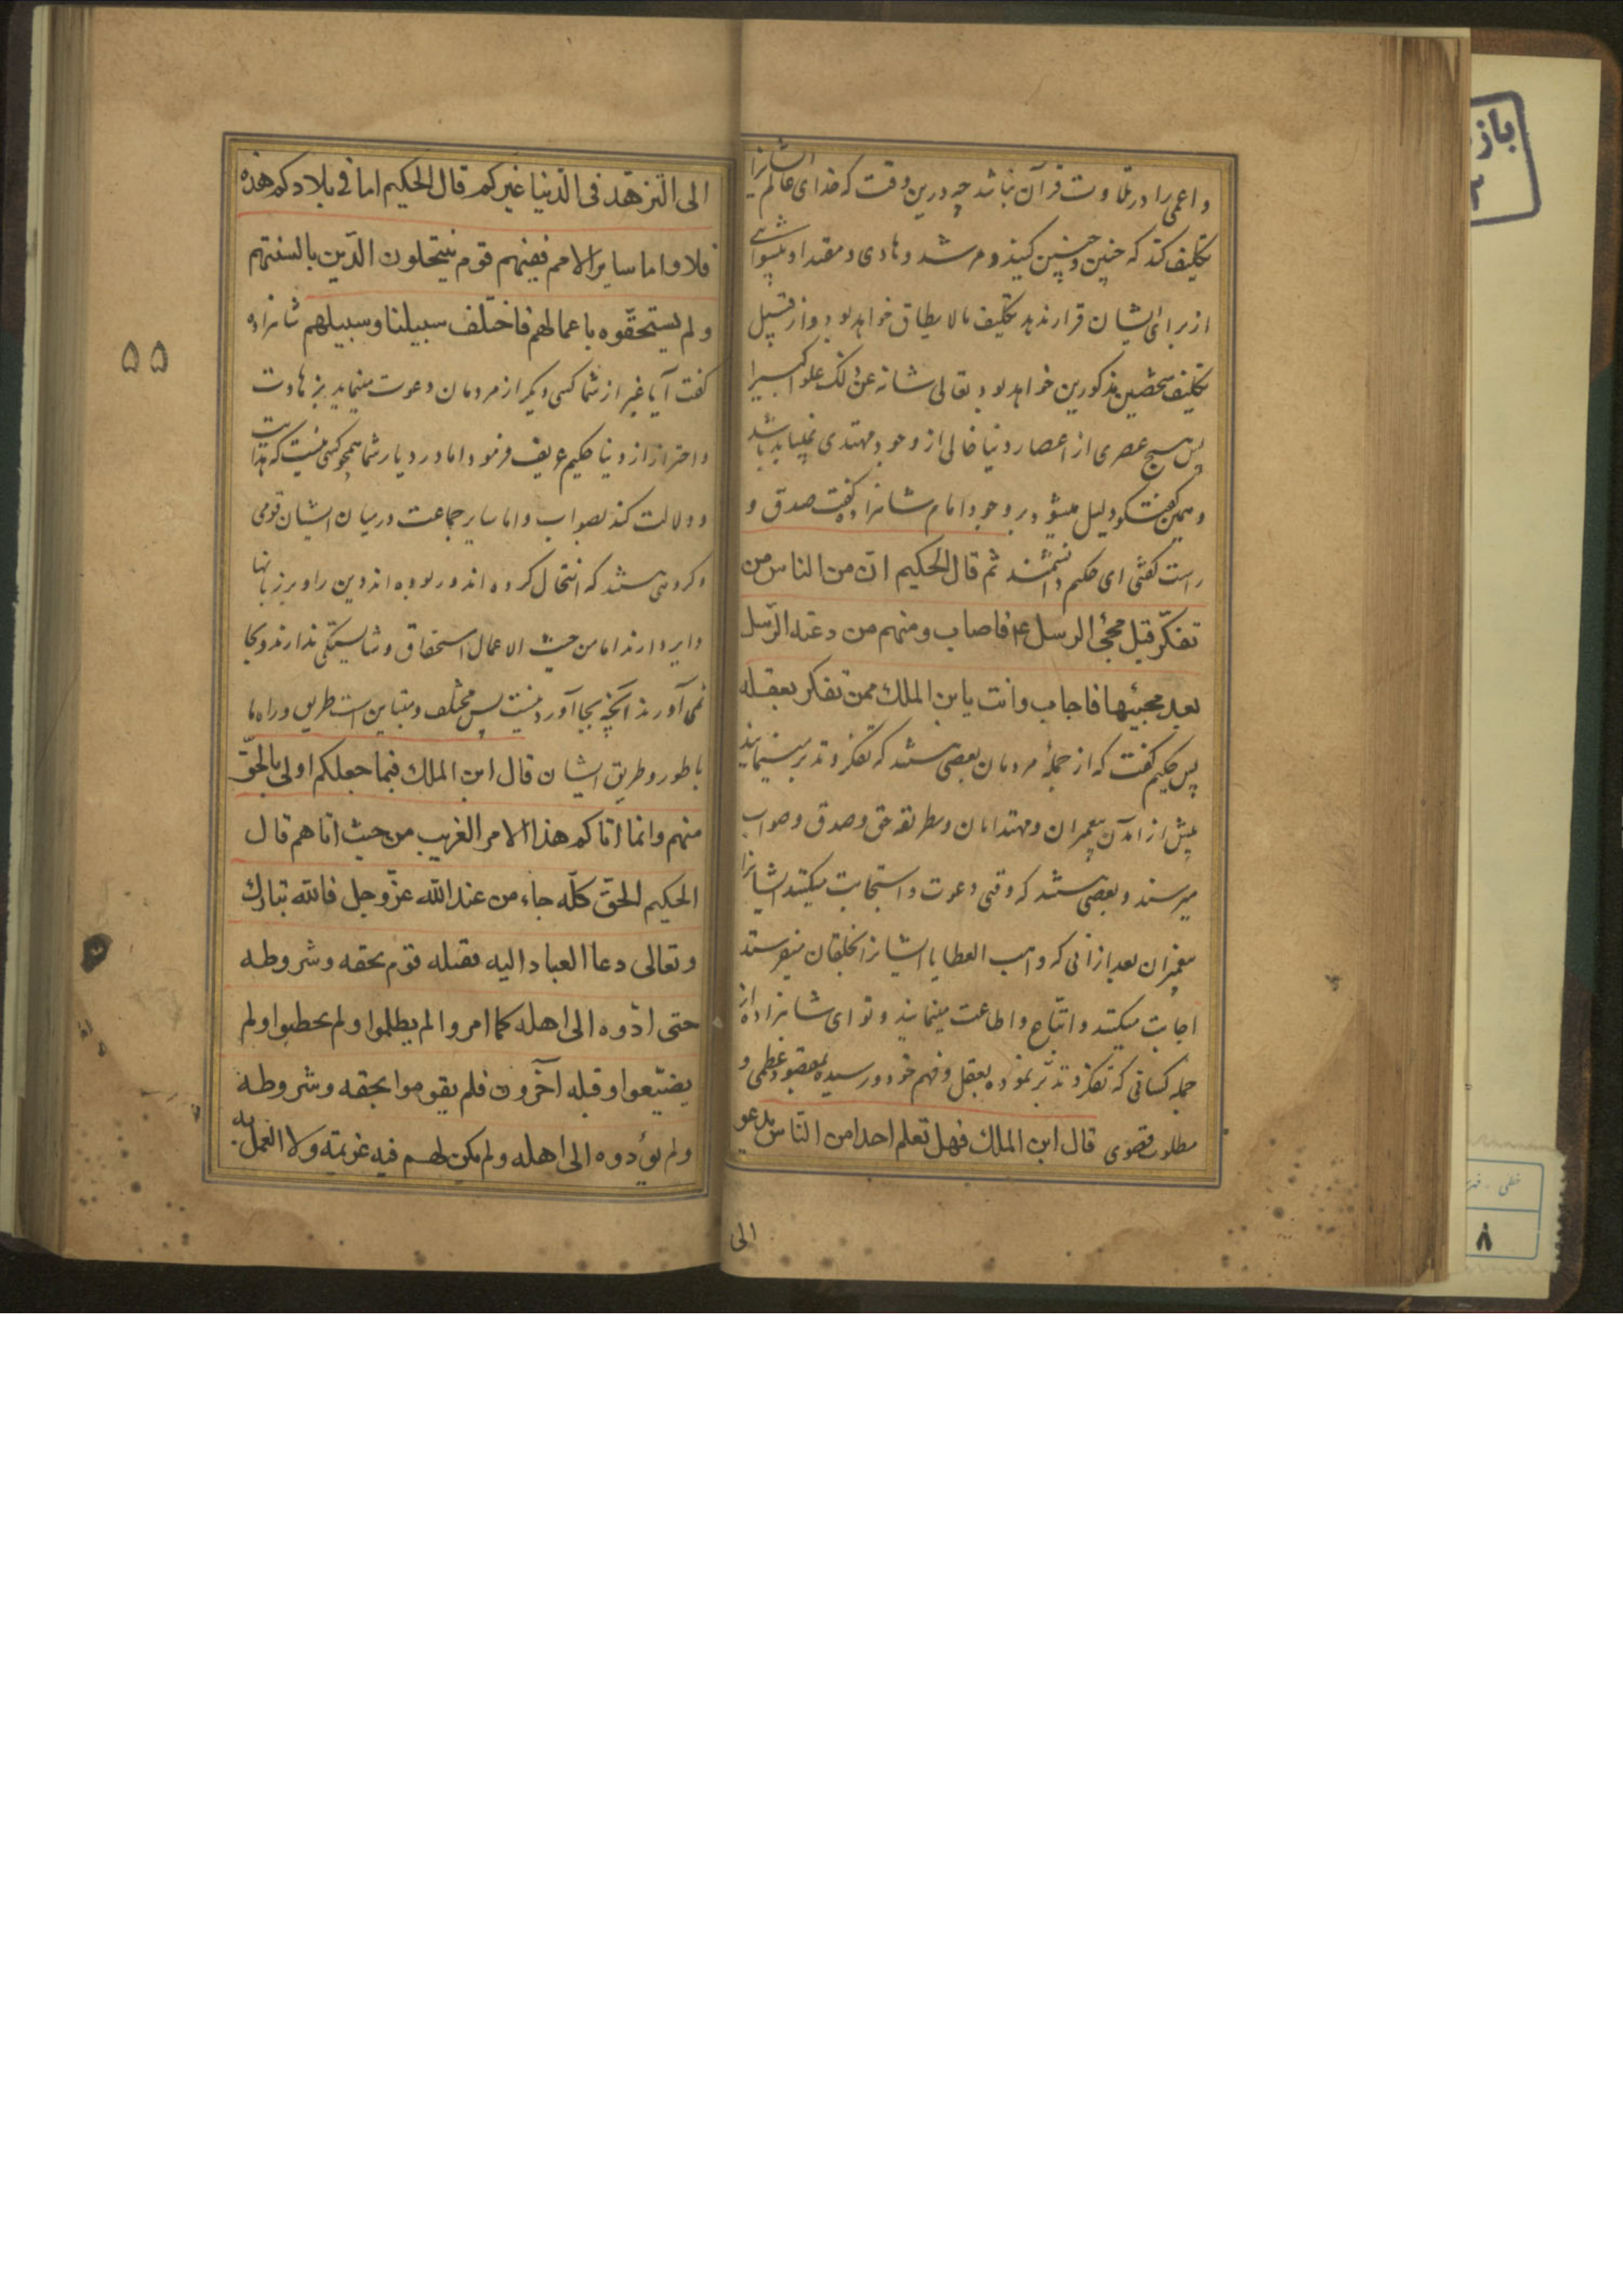 و اعمی را در تلاوت قرآن نباشد چه درین وقت که خدای عالم ایشانرا
تکلیف کند که چنین و چنین کنید و مرشد و هادی و مقتدا و پیشوائی
از برای ایشان قرار ندهد تکلیف مالایطاق خواهد بود و از قبیل
تکلیف شخصین مذکورین خواهد بود تعالی شانه عن ذلک علوا کبیرا
پس هیچ عصری از اعصار دنیا خالی از وجود مهتدی نمیباید باشد
و همین گفتگو دلیل میشود بر وجود امام شاهزاده گفت صدق و
راست گفتی ای حکیم دانشمند ثم قال الحکیم ان من الناس من
تفکّر قبل مجئ الرسل ع۴ فاصاب و منهم من دعته الرّسل
بعد مجیئها فاجاب وانت یابن الملك ممن تفکر بعقله
پس حکیم گفت که از جملهٔ مردمان بعضی هستند که تفکر و تدبر مینمایند
پیش از آمدن پیغمبران و مهتدایان و بطریقه حق و صدق و صواب
میرسند و بعضی هستند که وقتی دعوت و استجابت میکنند ایشانرا
پیغمبران بعد از آنی که واهب العطایا ایشانرا بخلقان میفرستد
اجابت میکنند و اتباع و اطاعت مینمایند و تو ای شاهزاده از
جمله کسانی که تفکر و تدبّر نموده بعقل و فهم خود و رسیده بمقصود عظمی و
مطلوب قصوی قال ابن الملك فهل تعلم احدا من النّاس یدعو
الی
الی التزهّد فی الدّنیا غیرکم قال الحکیم اما فی بلادکم هذه
فلا و اما سایر الامم ففیهم قوم ینتحلون الدّین بالسنتهم
ولم یستحقّوه باعمالهم فاختلف سبیلنا وسبیلهم شاهزاده
گفت آیا غیر از شما کسی دیگر از مردمان دعوت مینماید بزهادت
و احتراز از دنیا حکیم عریف فرمود اما در دیار شما همچو کسی نیست که هدایت
و دلالت کند بصواب و اما سایر جماعت در میان ایشان قومی
و گروهی هستند که انتحال کرده اند و ربوده اند دین را و بر زبانها
دایر دارند اما من حیث الاعمال استحقاق و شایستگی ندارند و بجا
نمی آورند آنچه بجا آوردنیست پس مختلف و متباین است طریق و راه ما
با طور و طریق ایشان قال ابن الملك فبما جعلکم اولی بالحقّ
منهم وانما اتاکم هذا الامر الغریب من حیث اتاهم قال
الحکیم الحقّ کلّه جاء من عند الله عزّ وجل فانّه تبارك
وتعالی دعا العباد الیه فقبله قوم بحقه وشروطه
حتی ادّوه الی اهله کما امروا لم یظلموا ولم یخطبوا ولم
یضیّعوا وقبله آخرون فلم یقوموا بحقه وشروطه
ولم یؤدوه الی اهله ولم یکن لهم فیه عزیمة ولا العمل به
۵۵
باز
خطی
۸